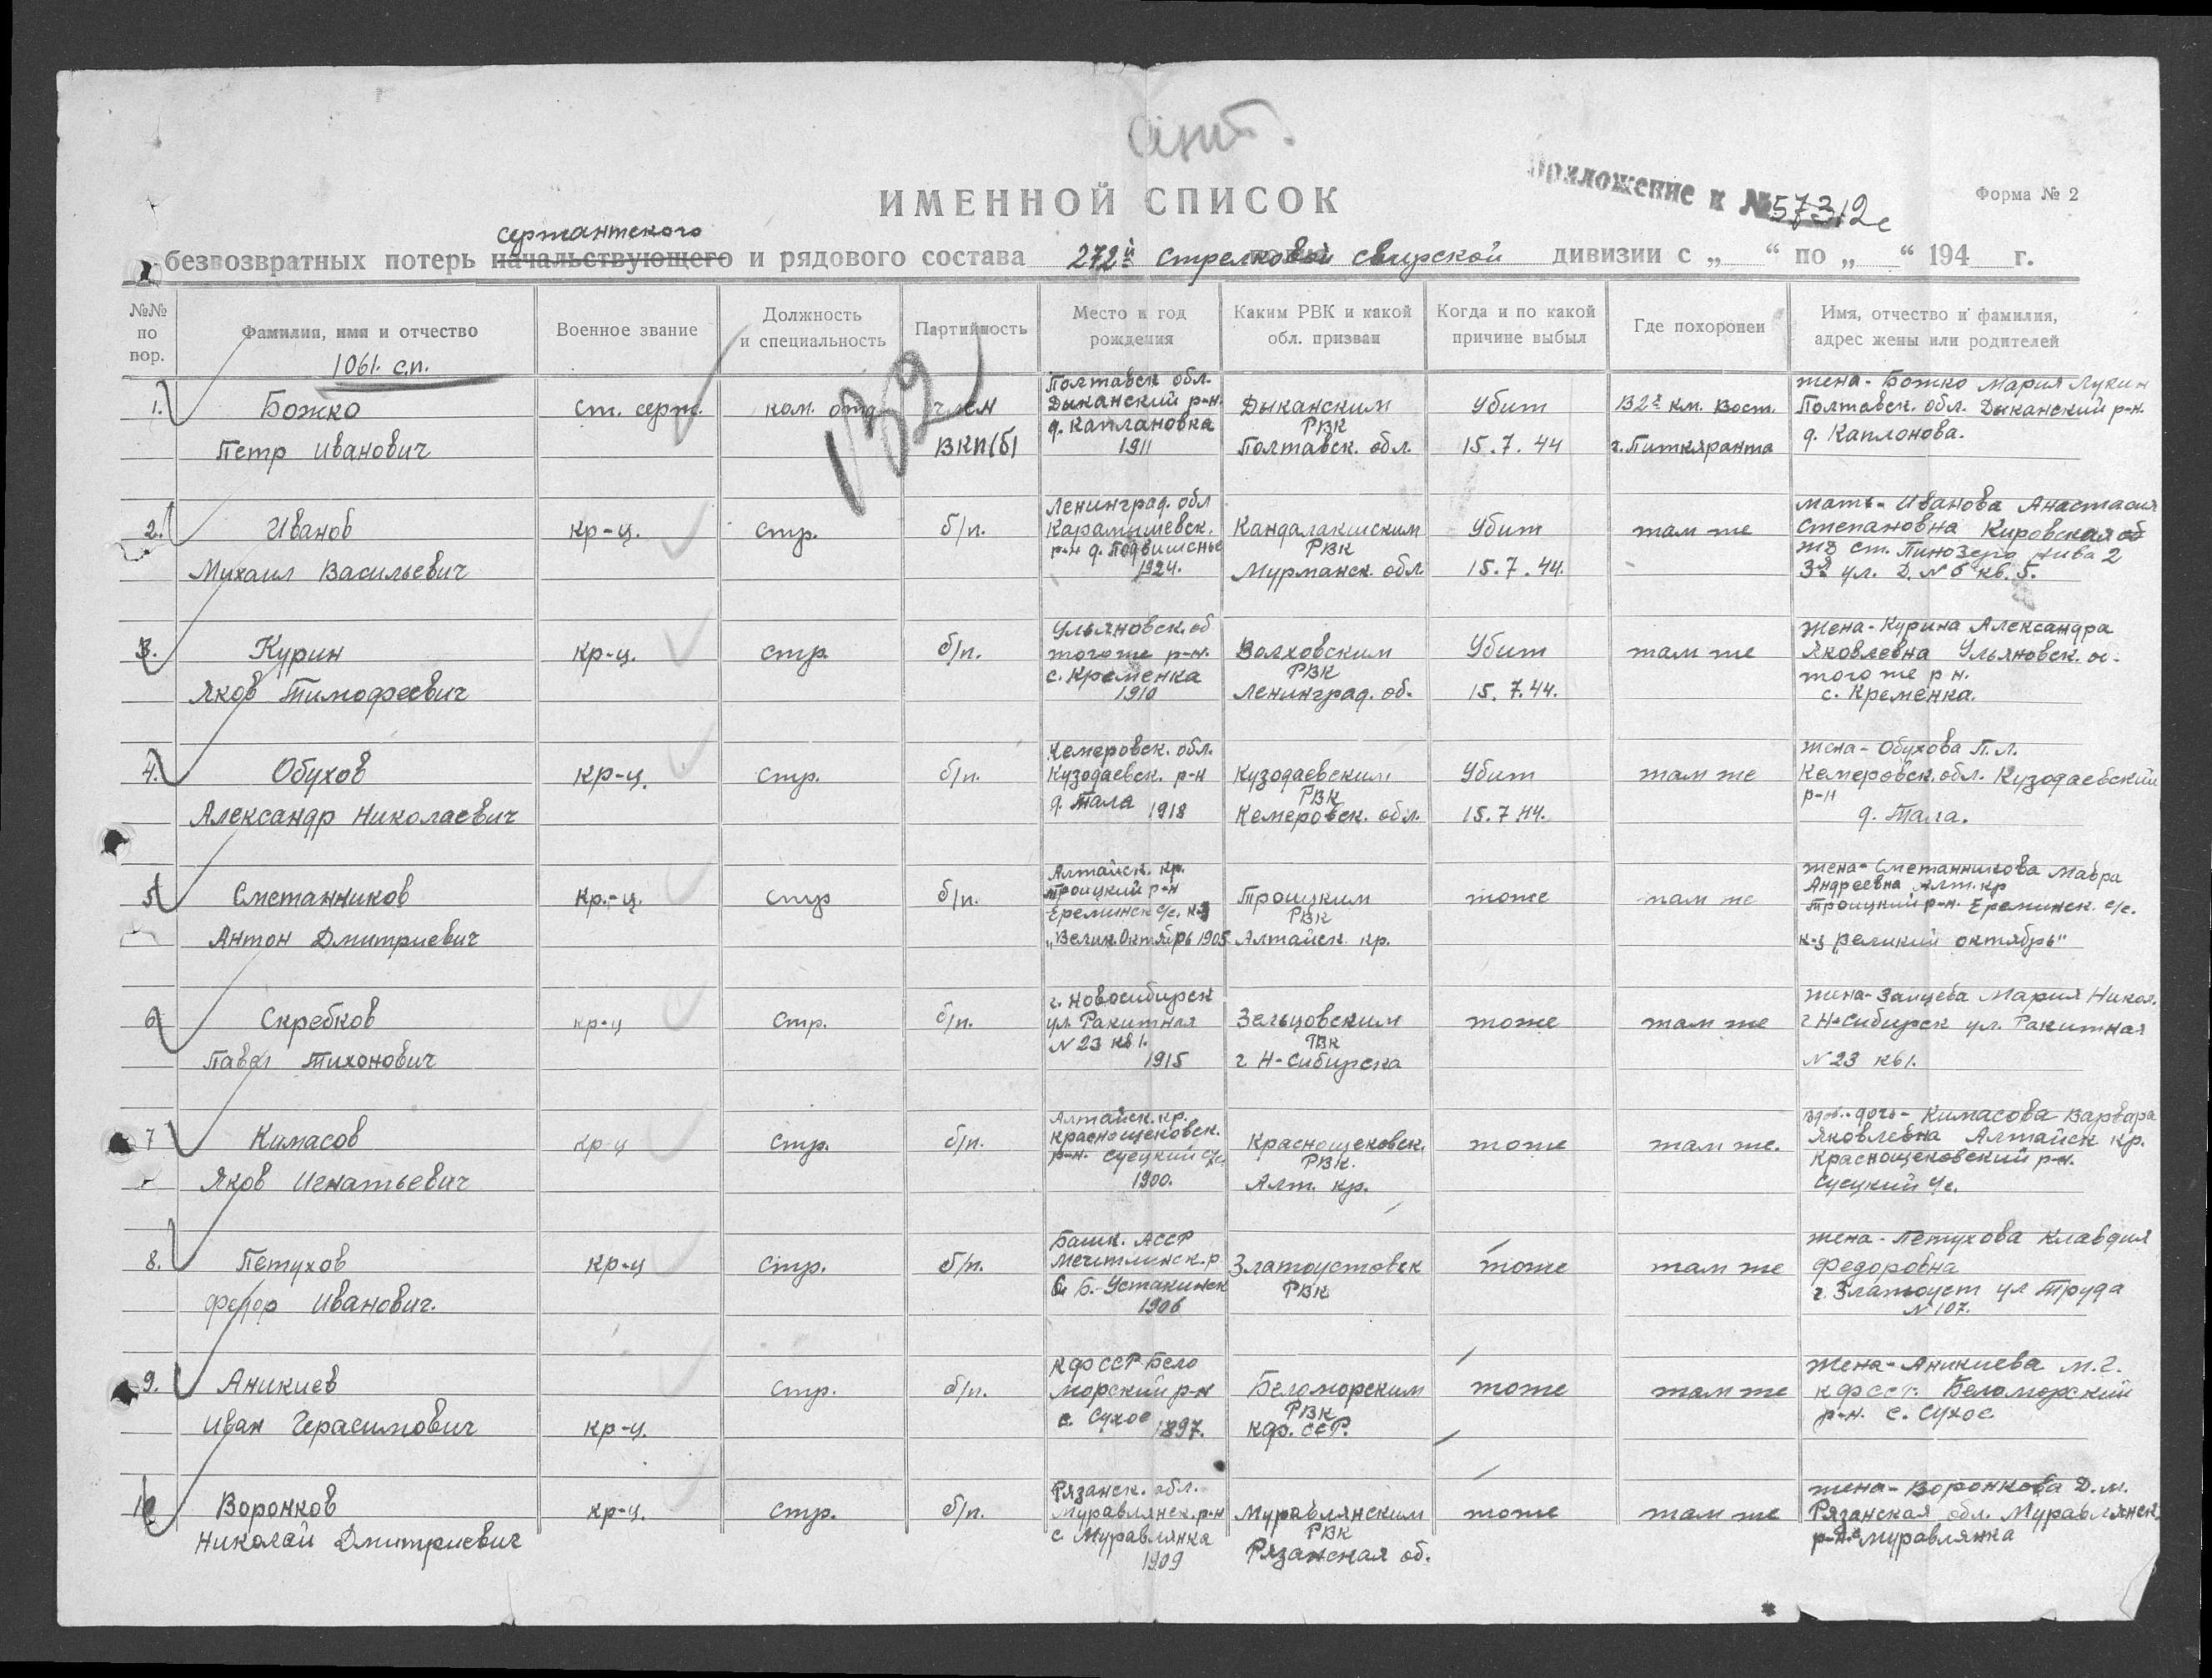 Приложение к № 57312с
Форма № 2
ИМЕННОЙ СПИСОК
сержантского
безвозвратных потерь начальствующего и рядового состава 272й стрелковой свирской дивизии с „ “ по „ “ 194 г.
№№ по пор.
Фамилия, имя и отчество
Военное звание
Должность и специальность
Партийность
Место и год рождения
Каким РВК и какой обл. призван
Когда и по какой причине выбыл
Где похоронен
Имя, отчество и фамилия, адрес жены или родителей
1061 с.п.
132
1.
Божко
Петр Иванович
ст. серж.
ком. отд.
член
ВКП(б)
Полтавск обл.
Дыканский р-н.
д. Каплановка
1911
Дыканским
РВК
Полтавск. обл.
Убит
15.7.44
В 2х км. Вост.
г. Питкяранта
жена - Божко Мария Лукин
Полтавск. обл. Дыканский р-н.
д. Каплонова.
2.
Иванов
Михаил Васильевич
кр-ц.
стр.
б/п.
Ленинград. обл
Карамышевск.
р-н д.
1924.
Кандалакшским
РВК
Мурманск. обл
Убит
15.7.44.
там же
мать - Иванова Анастасия
Степановна Кировская об
жд ст. Пинозеро нива 2
3я ул. Д. № 6 кв. 5.
3.
Курин
Яков Тимофеевич
кр-ц.
стр.
б/п.
Ульяновск. об
тогоже р-н.
с. Кременка
1910
Волховским
РВК
Ленинград. об.
Убит
15.7.44.
там же
жена - Курина Александра
Яковлевна Ульяновск. о.
того же р н.
с. Кременка.
4.
Обухов
Александр Николаевич
кр-ц.
стр.
б/п.
Кемеровск. обл.
Кузодаевск. р-н
д. Тала 1918
Кузодаевским
РВК
Кемеровск. обл.
Убит
15.7.44.
там же
жена - Обухова П.Л.
Кемеровск. обл. Кузодаевский
р-н
д. Тала.
5
Сметанников
Антон Дмитриевич
кр.-ц.
стр
б/п.
Алтайск. кр.
Троицкий р-н
Ереминск с/с. к-з
„Велик. Октябрь 1905
Троицким
РВК
Алтайск кр.
тоже
там же
жена - Сметанникова Мавра
Андреевна Алт. кр
Троицкий р-н. Ереминск. с/с.
к-з „Великий октябрь"
6
Скребков
Павел Тихонович
кр-ц
стр.
б/п.
г. Новосибирск
ул. Ракитная
№ 23 кв 1.
1915
Зельцовским
РВК
г Н-Сибирска
тоже
там же
жена - Зайцева Мария Никол.
г Н-Сибирск ул. Ракитная
№ 23 кв 1.
7
Кимасов
Яков Игнатьевич
кр-ц
стр.
б/п.
Алтайск. кр.
Краснощековск.
р-н. Суецкий с/с.
1900.
Краснощековск.
РВК.
Алт. кр.
тоже
там же.
дочь - Кимасова Варвара
Яковлевна Алтайск кр.
Краснощековский р-н.
Суецкий с/с.
8.
Петухов
Федор Иванович.
кр-ц
стр.
б/п.
Башк. АССР
Мечитлинск. р
с Б.-Устакинск
1906
Златоустовск
РВК
тоже
там же
жена - Петухова Клавдия
Федоровна
г. Златоуст ул Труда
№ 107.
9.
Аникиев
Иван Герасимович
кр-ц.
стр.
б/п.
КФССР Бело
морский р-н
с. Сухое 1897.
Беломорским
РВК
КФ. ССР.
тоже
там же
жена - Аникиева М.Г.
КФССР. Беломорский
р-н. с. Сухое
10
Воронков
Николай Дмитриевич
кр-ц.
стр.
б/п.
Рязанск. обл.
Муравлянск. р-н
с Муравлянка
1909
Муравлянским
РВК
Рязанская об.
тоже
там же
жена - Воронкова Д.М.
Рязанская обл. Муравлянск.
р-н. с Муравлянка